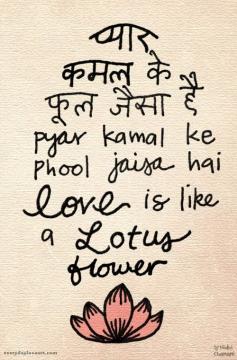 प्यार
कमल के
फूल जैसा है
pyar kamal ke
phool jaisa hai
love is like
a Lotus
flower